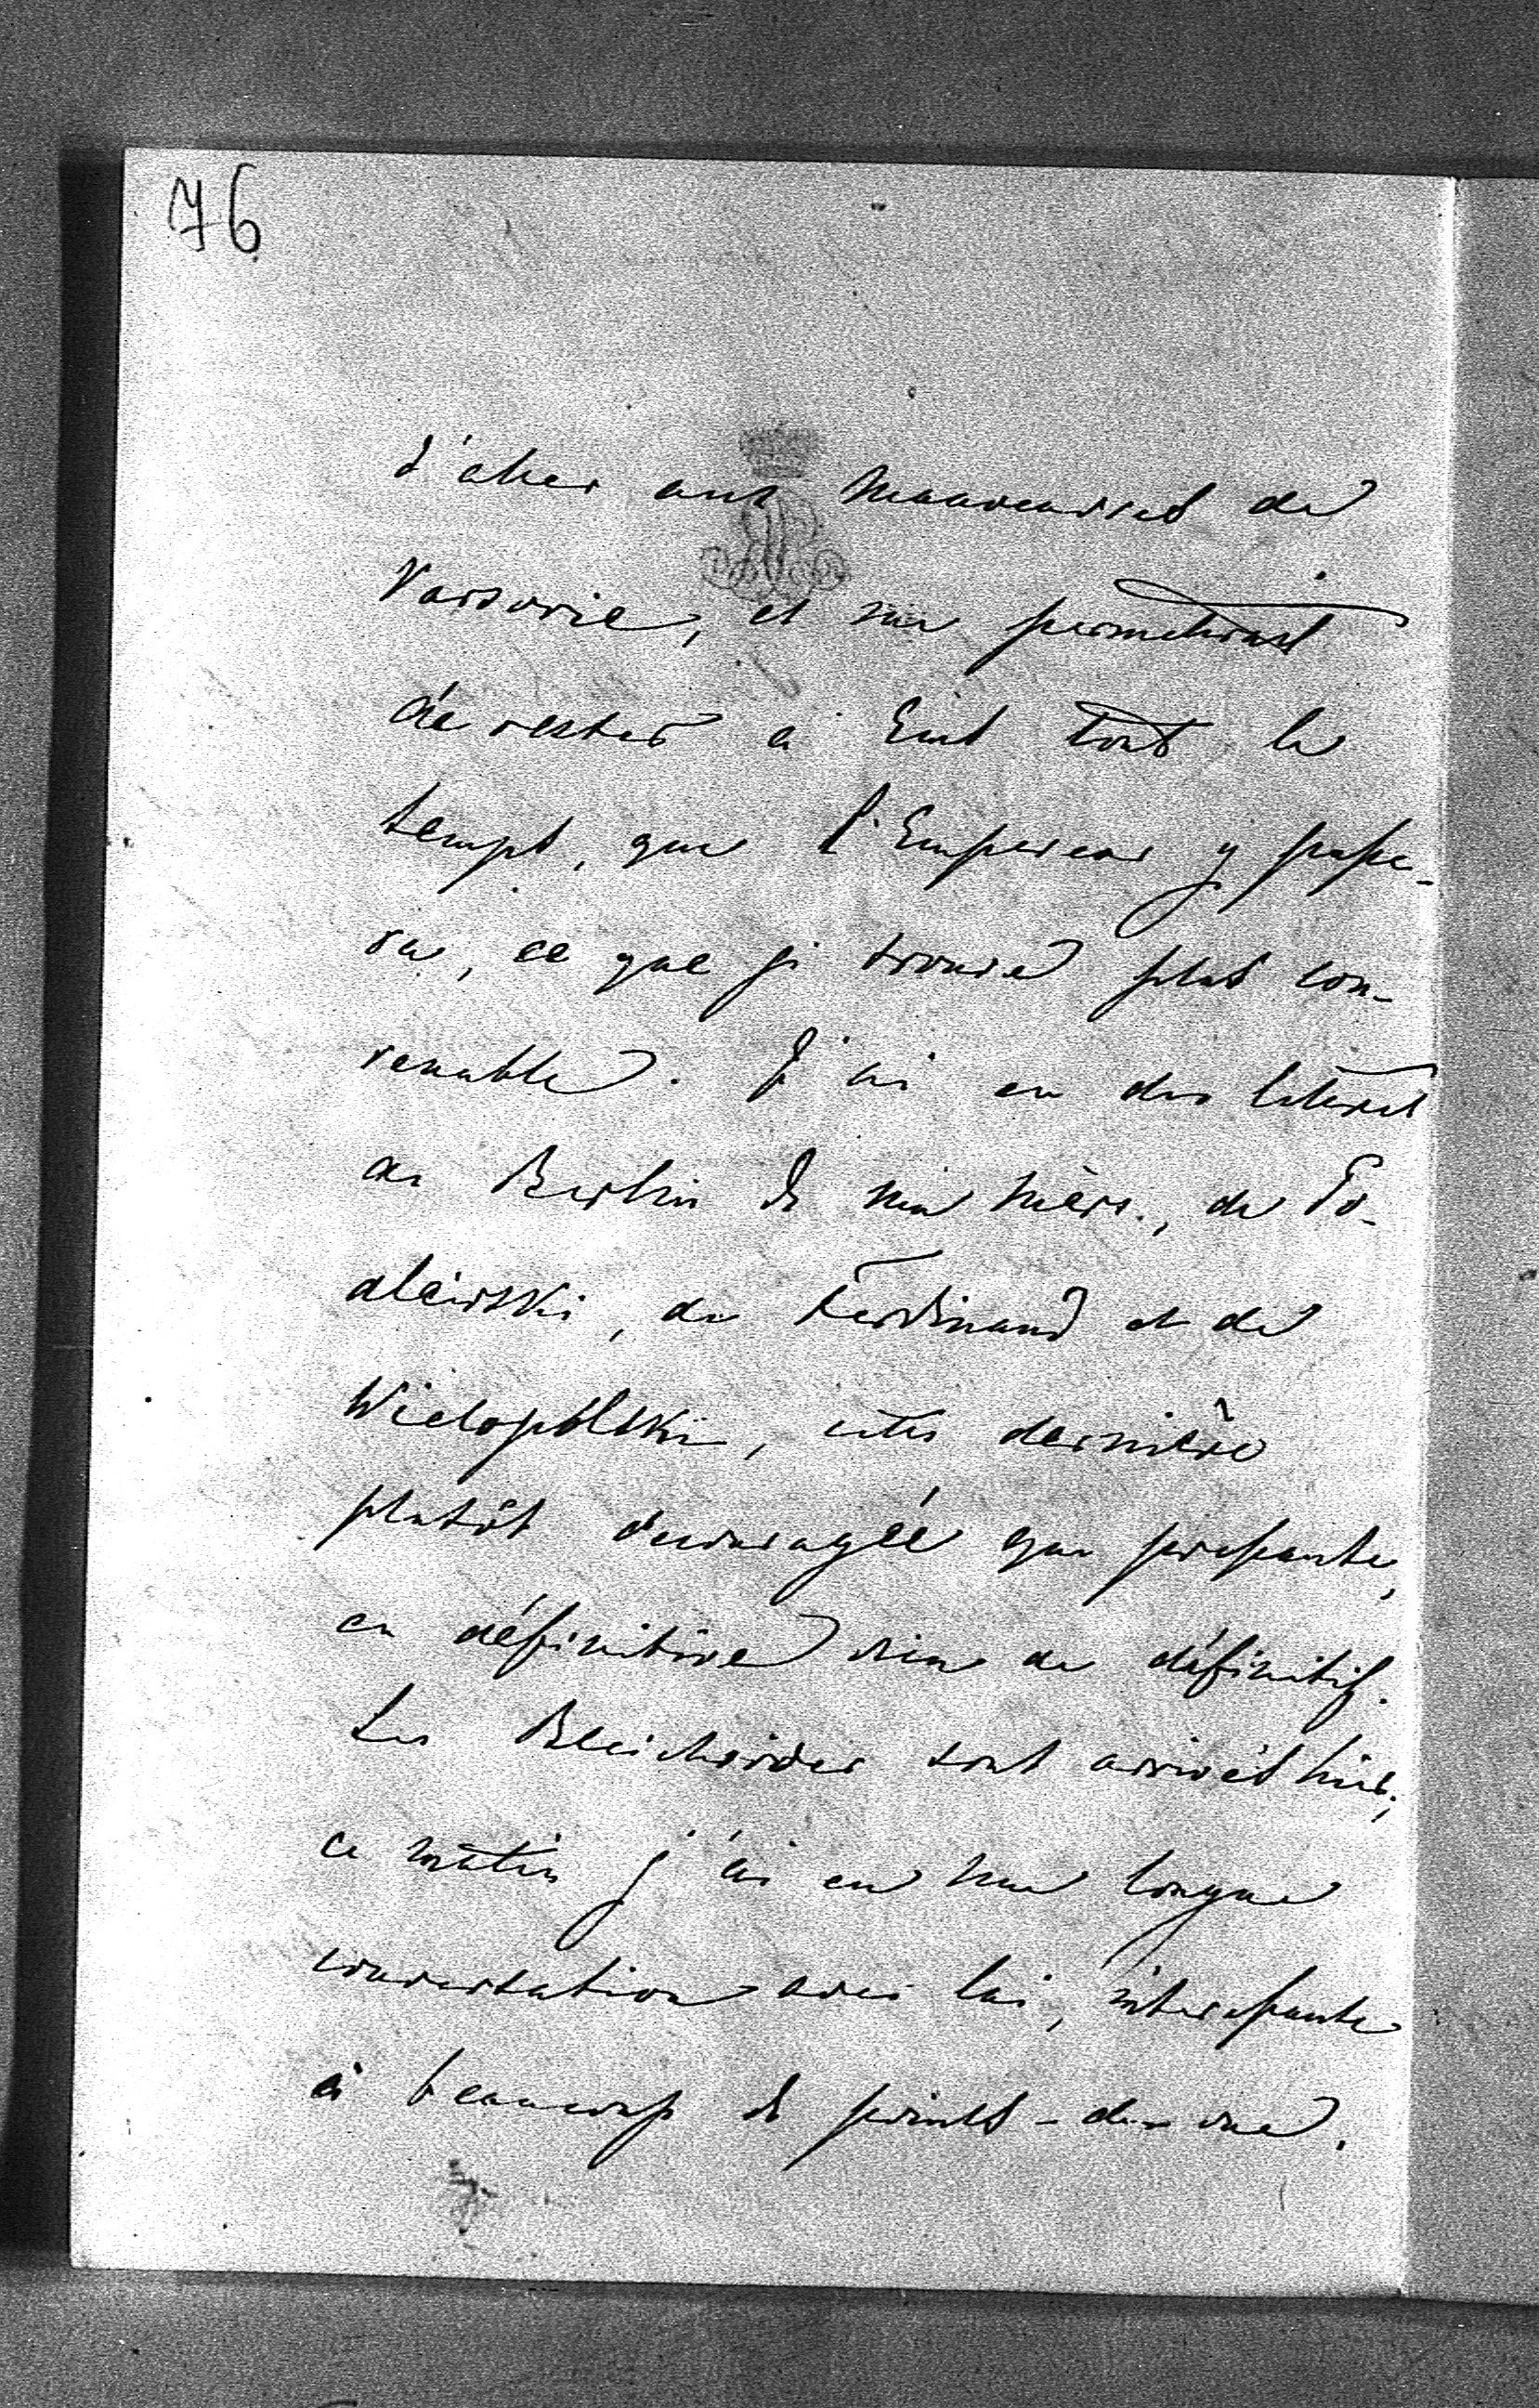 76
d'aller aux manœuvres de
Varsovie, et me permettrait
de rester à Ems tout le
temps, que l'Empereur y passe-
ra, ce que je trouve plus con-
venable. J'ai eu des lettres
de Berlin de ma mère, de
, de Ferdinand et de
Wielopolski, cette dernière
plutôt découragée que pressante,
en définitive rien de définitif.
Les Bleichröder sont arrivés hier;
ce matin j'ai eu une longue
conversation avec lui, intéressante
à beaucoup de points-de-vue.